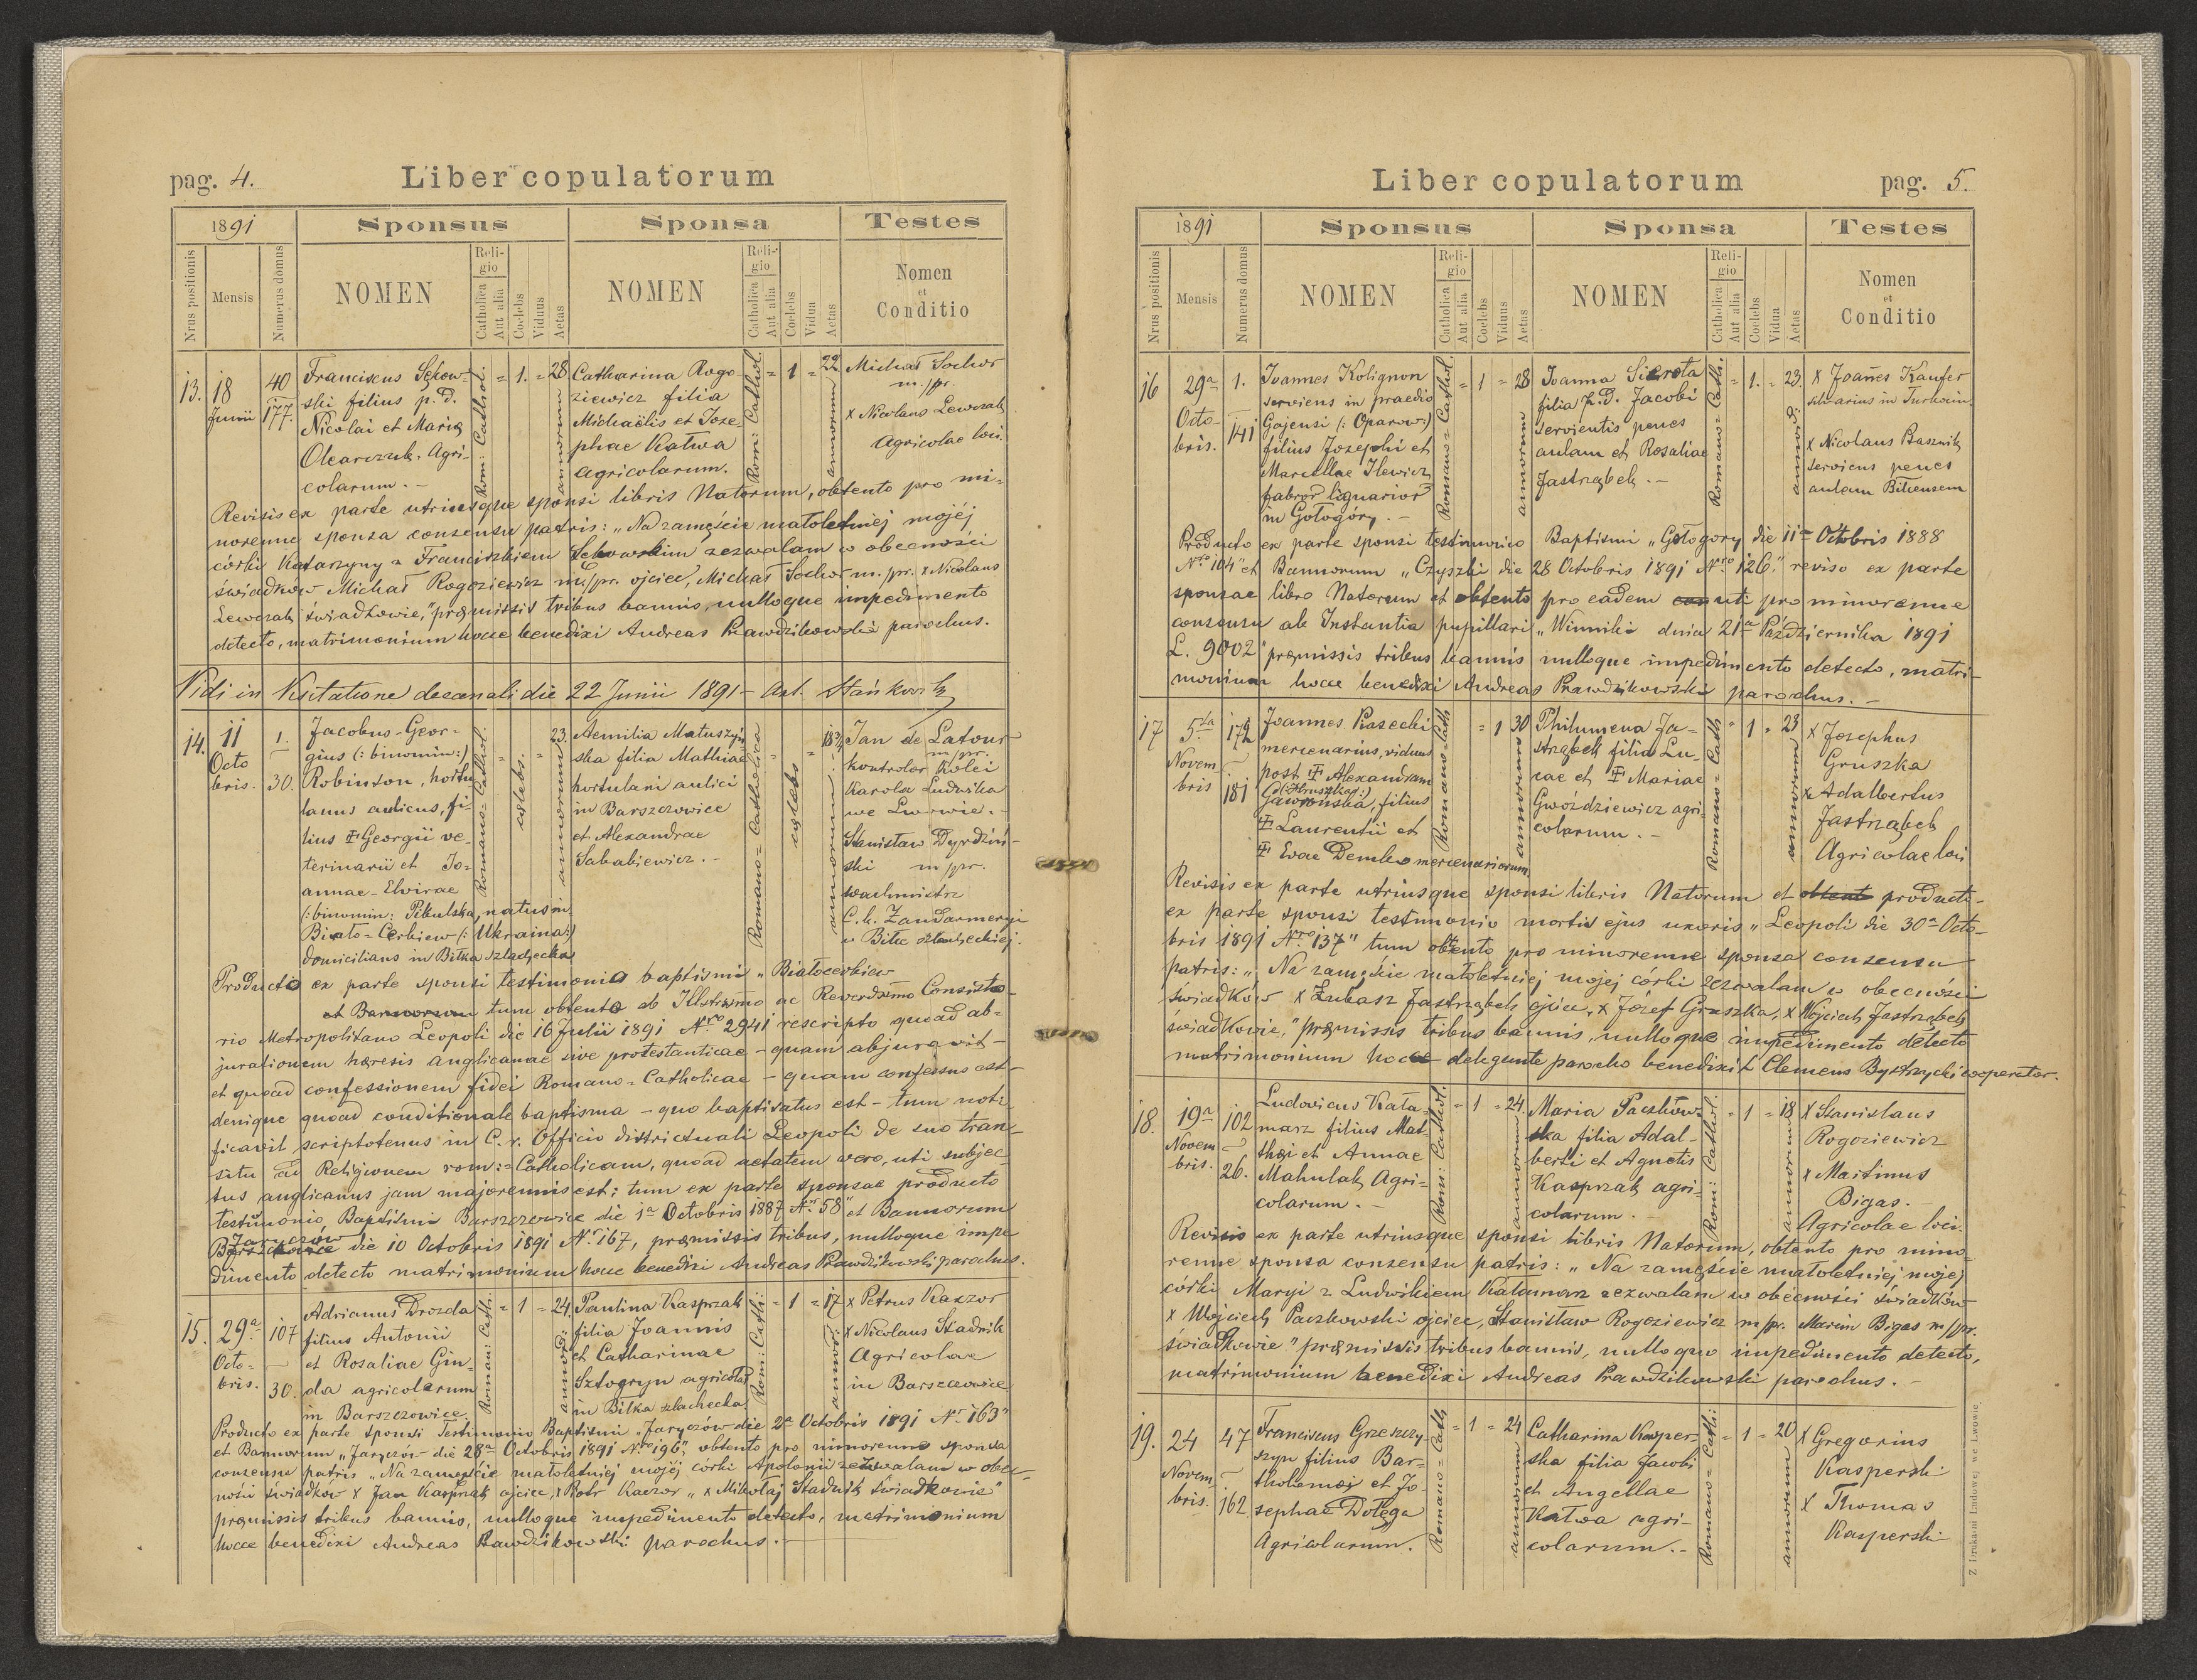 pag. 4.
Liber copulatorum
1891
Sponsus
Sponsa
Testes
Nrus positionis
Mensis
Numerus domus
NOMEN
Religio
Catholica
Aut alia
Coelebs
Viduus
Aetas
NOMEN
Religio
Catholica
Aut alia
Coelebs
Vidua
Aetas
Nomen
et
Conditio
13.
18
Junii
40
177.
Franciscus Sękow-
ski filius p. d.
Nicolai et Maria
Olearczuk. Agri-
colarum. -
Rom: Cathol:
= 1. = 28
annorum
Catharina Rogo
ziewicz filia
Michaëlis et Jose-
phae Katwa
agricolarum.
Rom: Cathol.
= 1 = 22
annorum
Michał Sochor
m./pr.
x Nicolaus Lewczak
Agricolae loci.
Revisis ex parte utriusque sponsi libris Natorum, obtento pro mi-
norenne sponsa consensu patris: „Na zamęście małoletniej mojéj
córki Katarzyny z Franciszkiem Sekowskim zezwalam w obecności
świadków Michał Rogoziewicz m./pr. ojciec, Michał Sochor m./pr. x Nicolaus
Lewczak świadkowie," præmissis tribus bannis, nulloque impedimento
detecto, matrimonium hocce benedixi Andreas Prawdzikowski parochus.
Vidi in Visitatione decanali die 22 Junii 1891 -
14.
11
Octo
bris.
1.
30.
Jacobus-Geor-
gius (: binomin:)
Robinson, hortu
lanus aulicus, fi-
lius Georgii ve-
terinarii et Jo-
annae-Elvirae
(: binomin: Pikulska, natus in
Biało-Cerkiew (: Ukraina:)
domicilians in Biłka szlachecka
Romano-Cathol.
cælebs.
23.
annorum
Aemilia Matuszyń
ska filia Mathiae
hortulani aulici
in Barszczowice
et Alexandrae
Sababiewicz. -
Romano-Catholica
cælebs
18¾
annorum
Jan de Latour
m/pr.
kontrolor kolei
Karola Ludwika
we Lwowie. -
Stanisław Dyrdziń-
ski m/pr.
wachmistrz
C. k. Żandarmeryi
w Biłce szlacheckiej.
Producto ex parte sponsi testimonio baptismi „Białocerkiew
et Bannorum tum obtento ab Illstrssimo ac Reverdssimo Consisto-
rio Metropolitano Leopoli die 16 Julii 1891 Nro 2941 rescripto quoad ab-
jurationem hæresis anglicanae sive protestanticae - quam abjuravit -
et quoad confessionem fidei Romano-Catholicae - quam confessus est -
denique quoad conditionale baptisma - quo baptisatus est - tum noti-
ficavit scriptotenus in C. r. Officio districtuali Leopoli de suo tran-
situ ad Religionem rom:=Catholicam, quoad aetatem vero, uti subjec-
tus anglicanus jam majorennis est; tum ex parte sponsae producto
testimonio, Baptismi Barszczowice die 1a Octobris 1887 Nr 58" et Bannorum
Jaryczow
Barszczowice die 10 Octobris 1891 Nr 167, præmissis tribus, nulloque impe
dimento detecto matrimonium hocce benedixi Andreas Prawdzikowski parochus.
15.
29a
Octo-
bris.
107
30.
Adrianus Drozda
filius Antonii
et Rosaliae Gin-
da agricolarum
in Barszczowice.
Roman: Cath:
= 1 = 24
Paulina Kasprzak
filia Joannis
et Catharinae
Sztogryn agricolar.
in Biłka szlachecka.
Rom: Cath:
= 1 = 17
x Petrus Kaczor
x Nicolaus Stadnik
Agricolae
in Barszczowice
Producto ex parte sponsi Testimonio Baptismi „Jaryczów die 2a Octobris 1891 Nr 163"
et Bannorum „Jaryczów die 28a Octobris 1891 Nro 196," obtento pro minorenne sponsa
consensu patris „Na zamęście małoletniej mojéj córki Apolonii zezwalam w obec-
ności świadków x Jan Kasprzak ojciec, x Piotr Kaczor „ x Mikołaj Stadnik świadkowie"
præmissis tribus bannis, nulloque impedimento detecto, matrimonium
hocce benedixi Andreas Prawdzikowski parochus. -
Liber copulatorum
pag. 5.
1891
Sponsus
Sponsa
Testes
Nrus positionis
Mensis
Numerus domus
NOMEN
Religio
Catholica
Aut alia
Coelebs
Viduus
Aetas
NOMEN
Religio
Catholica
Aut alia
Coelebs
Vidua
Aetas
Nomen
et
Conditio
16
29a
Octo-
bris.
1.
141
Joannes Kolignon
serviens in praedio
Gajensi (: Oparow:)
filius Josephi et
Marcellae Ilewicz
fabror lignarior
in Gołogóry. -
Romano-Cathol.
= 1 = 28
annorum
Joanna Sierota
filia p. d. Jacobi
servientis penes
aulam et Rosaliae
Jastrząbek. -
Romano-Cath:
= 1. = 23.
x Joannes Kaufer
x Nicolaus Basznik
serviens penes
aulam Biłkensem
Producto ex parte sponsi testimonio Baptismi „Gołogory die 11a Octobris 1888
Nro 104" et Bannorum „Czyszki die 28 Octobris 1891 Nro 126," reviso ex parte
sponsae libro Natorum et obtento pro eadem con uti pro minorenne
consensu ab Instantia pupillari „Winniki dnia 21a Października 1891
L. 9002" præmissis tribus bannis nulloque impedimento detecto, matri-
monium hocce benedixi Andreas Prawdzikowski parochus. -
17
5ta
Novem
bris
172
181
Joannes Piasecki
mercenarius, viduus
post Alexandram
(: Hruszkag:)
Gawrońska, filius
Laurentii et
Evae Dembo mercenariorum
Romano-Cath
= 1 30
annorum
Philumena Ja-
strząbek filia Lu-
cae et Mariae
Gwóździewicz agri-
colarum. -
Romano-Cath
= 1 = 23
annorum
x Josephus
Gruszka
x Adalbertus
Jastrząbek
Agricolae loci
Revisis ex parte utriusque sponsi libris Natorum et obtent producto
ex parte sponsi testimonio mortis ejus uxoris „Leopoli die 30a Octo-
bris 1891 Nro 137" tum obtento pro minorenne sponsa consensu
patris: „Na zamęście małoletniej mojej córki zezwalam w obecności
świadków x Łukasz Jastrząbek ojciec, x Józef Gruszka, x Wojciech Jastrząbek
świadkowie," præmissis tribus bannis, nulloque impedimento detecto
matrimonium hocce delegante parocho benedixit Clemens Bystrzycki cooperator.
18.
19a
Novem
bris.
102
26.
Ludovicus Kata-
marz filius Mat-
thæi et Annae
Mahulak Agri-
colarum. -
Rom: Cathol:
= 1 = 24
annorum
Maria Paczkow-
ska filia Adal-
berti et Agnetis
Kasprzak agri-
colarum. -
Rom: Cathol:
= 1 = 18
annorum
x Stanislaus
Rogoziewicz
x Martinus
Bigas. -
Agricolae loci.
Revisis ex parte utriusque sponsi libris Natorum, obtento pro mino-
renne sponsa consensu patris: „Na zamęście małoletniej mojej
córki Maryi z Ludwikiem Katamarz zezwalam w obecności świadków
x Wojciech Paczkowski ojciec, Stanisław Rogoziewicz m/pr. Marcin Bigas m/pr.
świadkowie" præmissis tribus bannis, nulloque impedimento detecto,
matrimonium benedixi Andreas Prawdzikowski parochus. -
19.
24
Novem
bris.
47
162
Franciscus Grzeszczy-
szyn filius Bar-
tholomæi et Jo-
sephae Dołęga
Agricolarum.
Romano-Cath
= 1 = 24
annorum
Catharina Kasper-
ska filia Jacobi
et Angellae
Katwa agri-
colarum. -
Romano-Cath:
= 1 = 20
annorum
x Gregorius
Kasperski
x Thomas
Kasperski
Z Drukarni Ludowej we Lwowie.